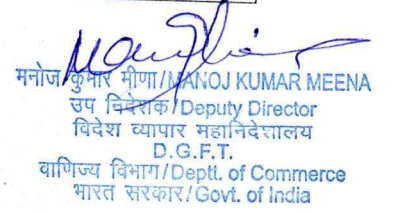 मनोज कुमार मीणा/MANOJ KUMAR MEENA
उप निदेशक/Deputy Director
विदेश व्यापार महानिदेशालय
D.G.F.T.
वाणिज्य विभाग/Deptt. of Commerce
भारत सरकार/Govt. of India